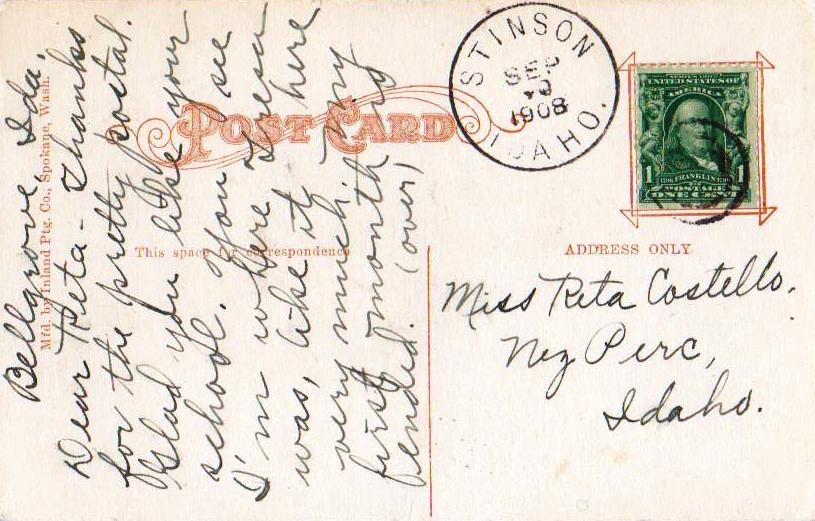 Bellgrove, Ida,
Dear Reta - Thanks
for the pretty postal.
Glad you like your
school. You see
I'm where I even
was, like it here
very much. My
first month is
ended. (over)
Mfd. by Inland Ptg. Co., Spokane, Wash.
POST CARD
This space for correspondence
STINSON
SEP
1908
IDAHO.
SERIES 1902
UNITED STATES OF
AMERICA
1 FRANKLIN 1
POSTAGE
ONE CENT
ADDRESS ONLY
Miss Reta Costello.
Nez Perc,
Idaho.